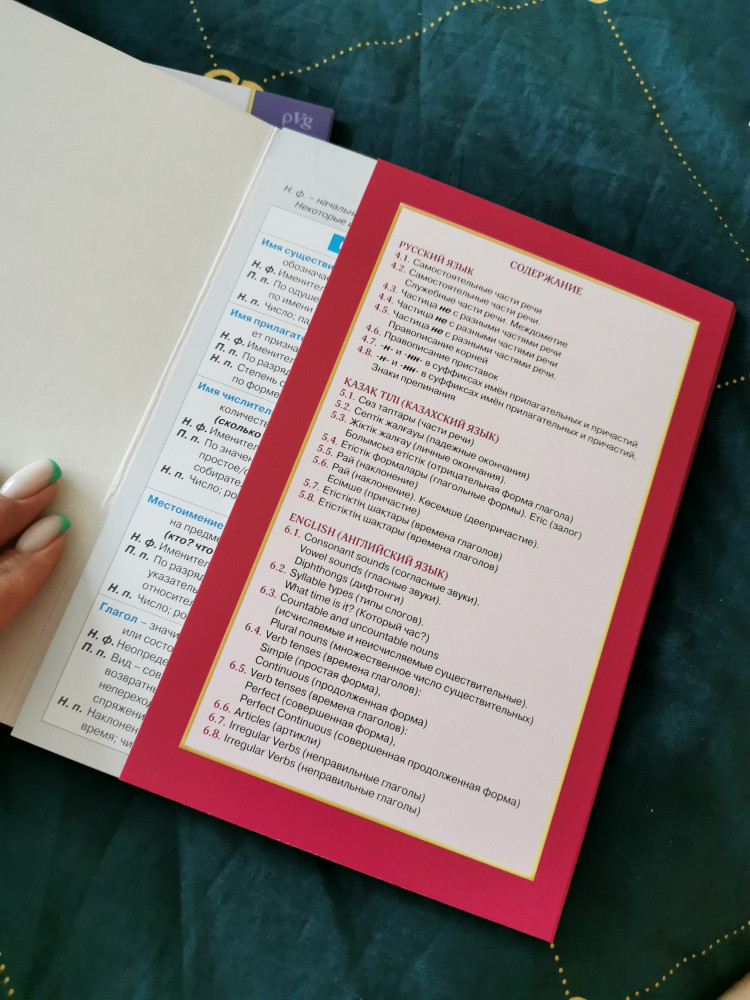 ρVg
Н. ф. – начальна
Некоторые
Имя существи
обозначае
Н. ф. Именител
П. п. По одуше
по имени
Н. п. Число; па
Имя прилагате
ет призна
Н. ф. Именител
П. п. По разряд
Н. п. Степень с
по форме
Имя числител
количеств
(сколько
Н. ф. Именител
П. п. По значен
простое/с
собирате
Н. п. Число; ро
Местоимение
на предме
(кто? что
Н. ф. Именител
П. п. По разряд
указатель
относител
Н. п. Число; ро
Глагол – значи
или состо
Н. ф. Неопреде
П. п. Вид – сов
возвратнь
непереход
спряжени
Н. п. Наклонен
время; чи
СОДЕРЖАНИЕ
РУССКИЙ ЯЗЫК
4.1. Самостоятельные части речи
4.2. Самостоятельные части речи.
Служебные части речи. Междометие
4.3. Частица не с разными частями речи
4.4. Частица не с разными частями речи
4.5. Частица не с разными частями речи.
Правописание корней
4.6. Правописание приставок
4.7. -н- и -нн- в суффиксах имён прилагательных и причастий
4.8. -н- и -нн- в суффиксах имён прилагательных и причастий.
Знаки препинания
ҚАЗАҚ ТІЛІ (КАЗАХСКИЙ ЯЗЫК)
5.1. Сөз таптары (части речи)
5.2. Септік жалғауы (падежные окончания)
5.3. Жіктік жалғау (личные окончания).
Болымсыз етістік (отрицательная форма глагола)
5.4. Етістік формалары (глагольные формы). Етіс (залог)
5.5. Рай (наклонение)
5.6. Рай (наклонение). Көсемше (деепричастие).
Есімше (причастие)
5.7. Етістіктің шақтары (времена глаголов)
5.8. Етістіктің шақтары (времена глаголов)
ENGLISH (АНГЛИЙСКИЙ ЯЗЫК)
6.1. Consonant sounds (согласные звуки).
Vowel sounds (гласные звуки).
Diphthongs (дифтонги)
6.2. Syllable types (типы слогов).
What time is it? (Который час?)
6.3. Countable and uncountable nouns
(исчисляемые и неисчисляемые существительные).
Plural nouns (множественное число существительных)
6.4. Verb tenses (времена глаголов):
Simple (простая форма),
Continuous (продолженная форма)
6.5. Verb tenses (времена глаголов):
Perfect (совершенная форма),
Perfect Continuous (совершенная продолженная форма)
6.6. Articles (артикли)
6.7. Irregular Verbs (неправильные глаголы)
6.8. Irregular Verbs (неправильные глаголы)